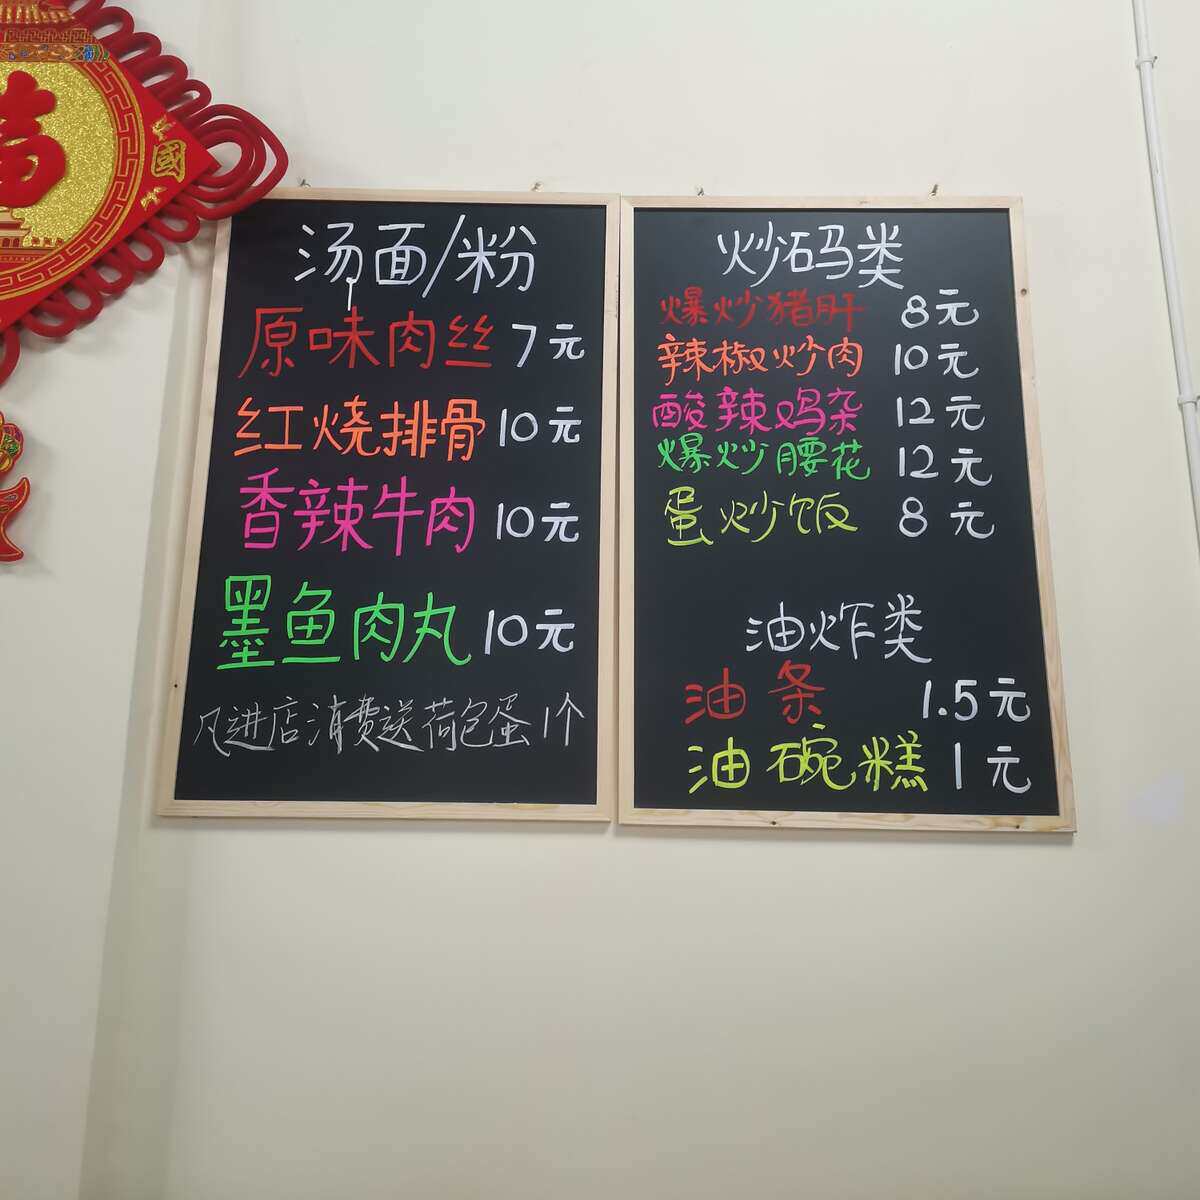 福
國
汤面/粉
原味肉丝 7元
红烧排骨 10元
香辣牛肉 10元
墨鱼肉丸 10元
凡进店消费送荷包蛋1个
炒码类
爆炒猪肝 8元
辣椒炒肉 10元
酸辣鸡杂 12元
爆炒腰花 12元
蛋炒饭 8元
油炸类
油条 1.5元
油碗糕 1元